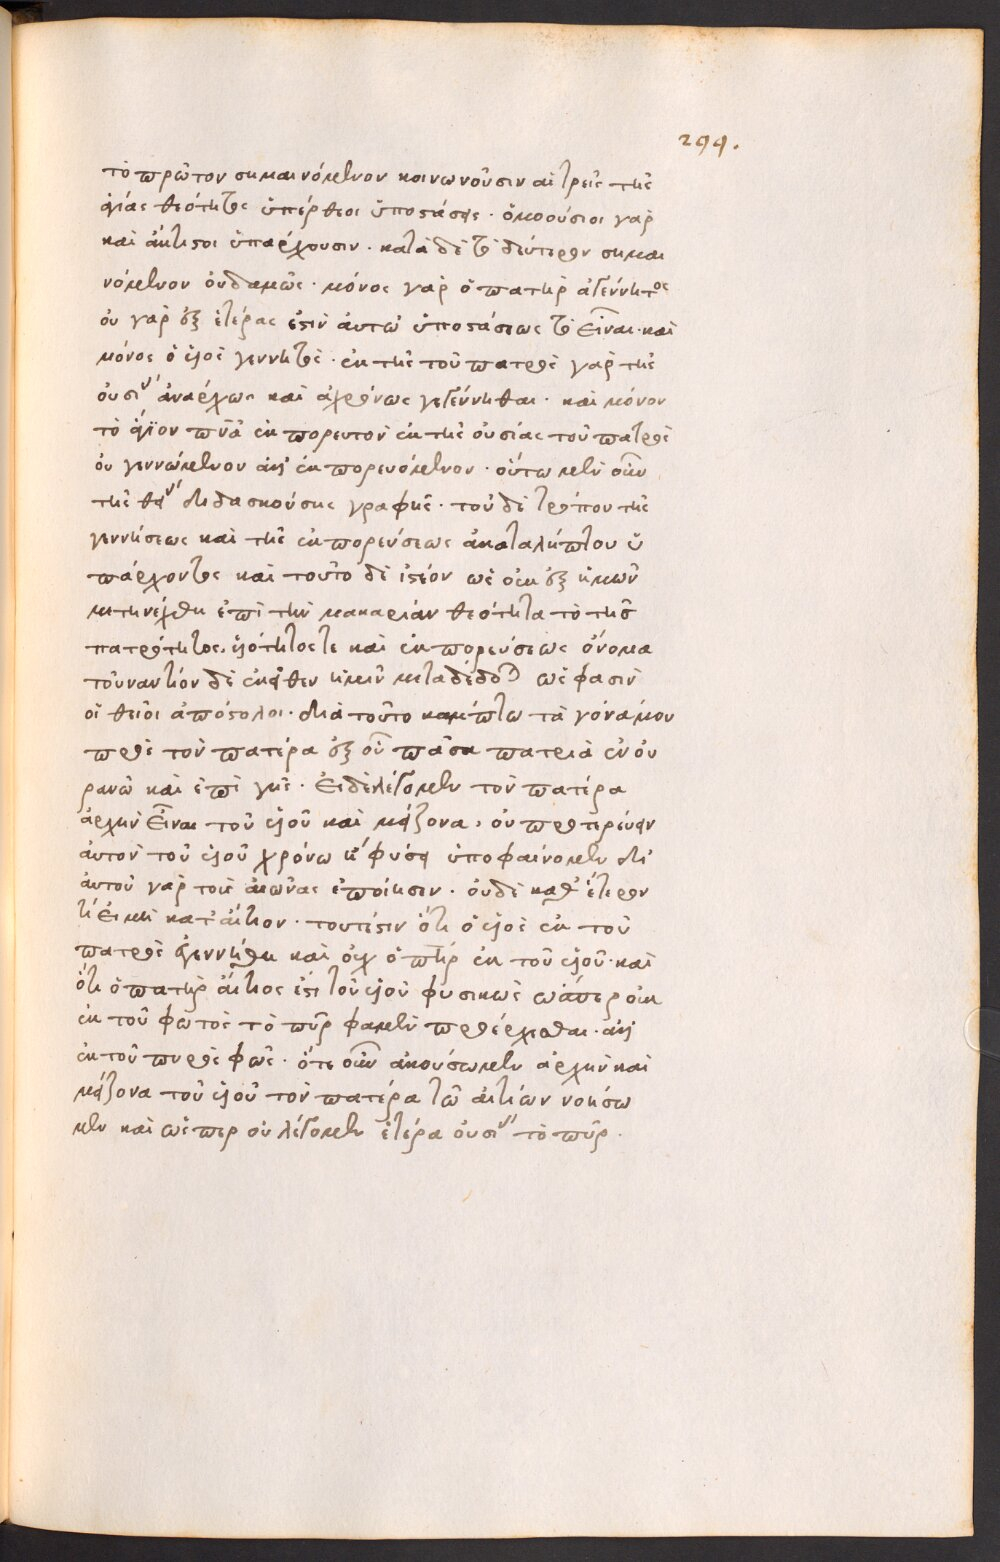 299.
τὸ πρῶτον σημαινόμενον κοινωνοῦσιν αἱ τρεῖς τῆς
ἁγίας θεότητος ὑπέρθεοι ὑποστάσεις · ὁμοούσιοι γὰρ
καὶ ἄκτιστοι ὑπάρχουσιν · κατὰ δὲ τὸ δεύτερον σημαι
νόμενον οὐδαμῶς · μόνος γὰρ ὁ πατὴρ ἀγέννητος
οὐ γὰρ ἐξ ἑτέρας ἐστὶν αὐτῶ ὑποστάσεως τὸ εἶναι · καὶ
μόνος ὁ υἱὸς γεννητὸς · ἐκ τῆς τοῦ πατρὸς γὰρ τῆς
οὐσίας ἀνάρχως καὶ ἀχρόνως γεγέννηται · καὶ μόνον
τὸ ἅγϊον πνᾶ ἐκπορευτὸν ἐκ τῆς οὐσίας τοῦ πατρὸς
οὐ γεννώμενον ἀλλ' ἐκπορευόμενον · οὕτω μὲν οὖν
τῆς θείας διδασκούσης γραφῆς · τοῦ δὲ τρόπου τῆς
γεννήσεως καὶ τῆς ἐκπορεύσεως ἀκαταλήπτου ὑ
πάρχοντος καὶ τοῦτο δὲ ἰστέον ὡς οὐκ ἐξ ἡμῶν
μετηνέχθη ἐπὶ τὴν μακαρίαν θεότητα τὸ τῆς
πατρότητος, υἱότητός τε καὶ ἐκπορεύσεως ὄνομα
τοὐναντίον δὲ ἐκεῖθεν ἡμῖν μεταδέδοται ὡς φασὶν
οἱ θεῖοι ἀπόστολοι · διὰ τοῦτο κάμπτω τὰ γόνα μου
πρὸς τὸν πατέρα ἐξ οὗ πᾶσα πατριὰ ἐν οὐ
ρανῶ καὶ ἐπὶ γῆς · εἰ δὲ λέγομεν τὸν πατέρα
ἀρχὴν εἶναι τοῦ υἱοῦ καὶ μείζονα, οὐ προτερεύειν
αὐτὸν τοῦ υἱοῦ χρόνω ἢ φύσει ὑποφαίνομεν δι'
αὐτοῦ γὰρ τοὺς αἰῶνας ἐποίησεν · οὐδὲ καθ' ἕτερόν
τι εἰ μὴ κατ' αἴτιον · τουτέστιν ὅτι ὁ υἱὸς ἐκ τοῦ
πατρὸς ἐγεννήθη καὶ οὐχ ὁ πτὴρ ἐκ τοῦ υἱοῦ · καὶ
ὅτι ὁ πατὴρ αἴτιός ἐστι τοῦ υἱοῦ φυσικῶς ὥσπερ οὐκ
ἐκ τοῦ φωτὸς τὸ πῦρ φαμὲν προέρχεσθαι · ἀλλ'
ἐκ τοῦ πυρὸς φῶς · ὅτε οὖν ἀκούσωμεν ἀρχὴν καὶ
μείζονα τοῦ υἱοῦ τὸν πατέρα τῶ αἰτίων νοήσω
μεν καὶ ὥσπερ οὐ λέγομεν ἑτέρα οὐσίας τὸ πῦρ ·